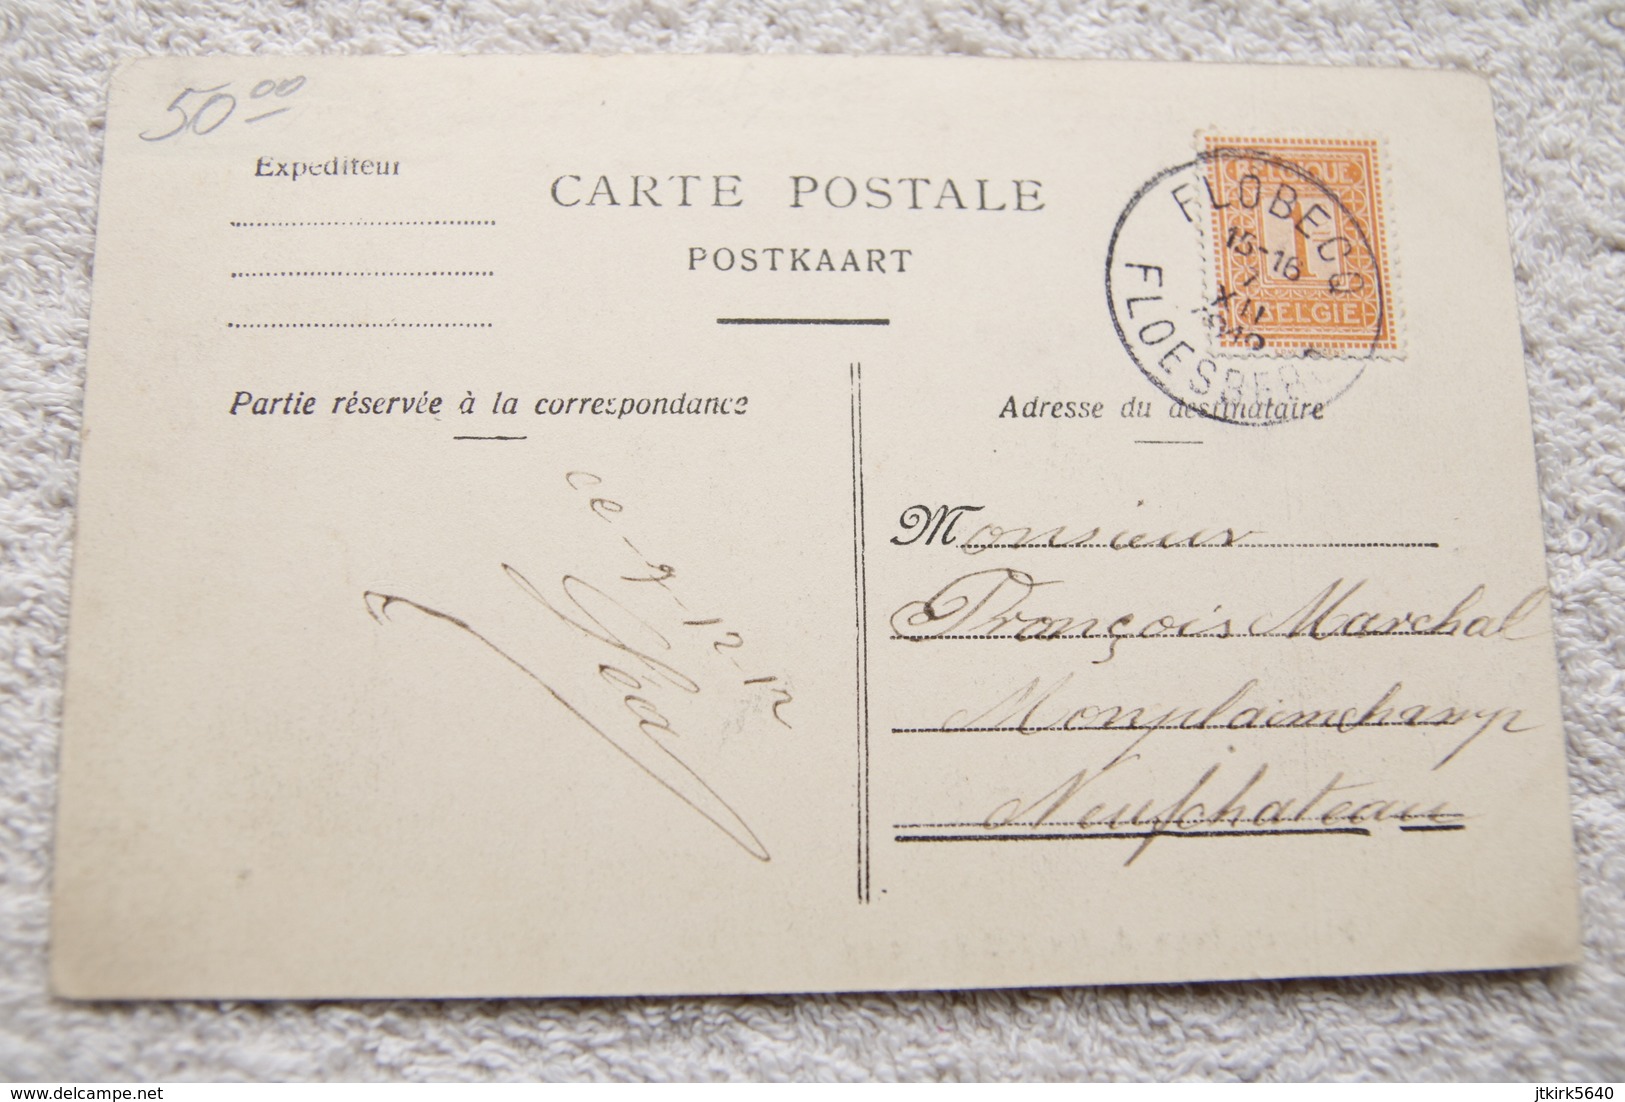 50 00
Expéditeur
CARTE POSTALE
POSTKAART
BELGIQUE
1
BELGIE
FLOBECQ
15-16
1
XII
FLOESBERG
Partie réservée à la correspondance
Adresse du destinataire
ce
12-12
Monsieur
François Marchal
Monplainchamp
Neufchateau
www.delcampe.net
jtkirk5640